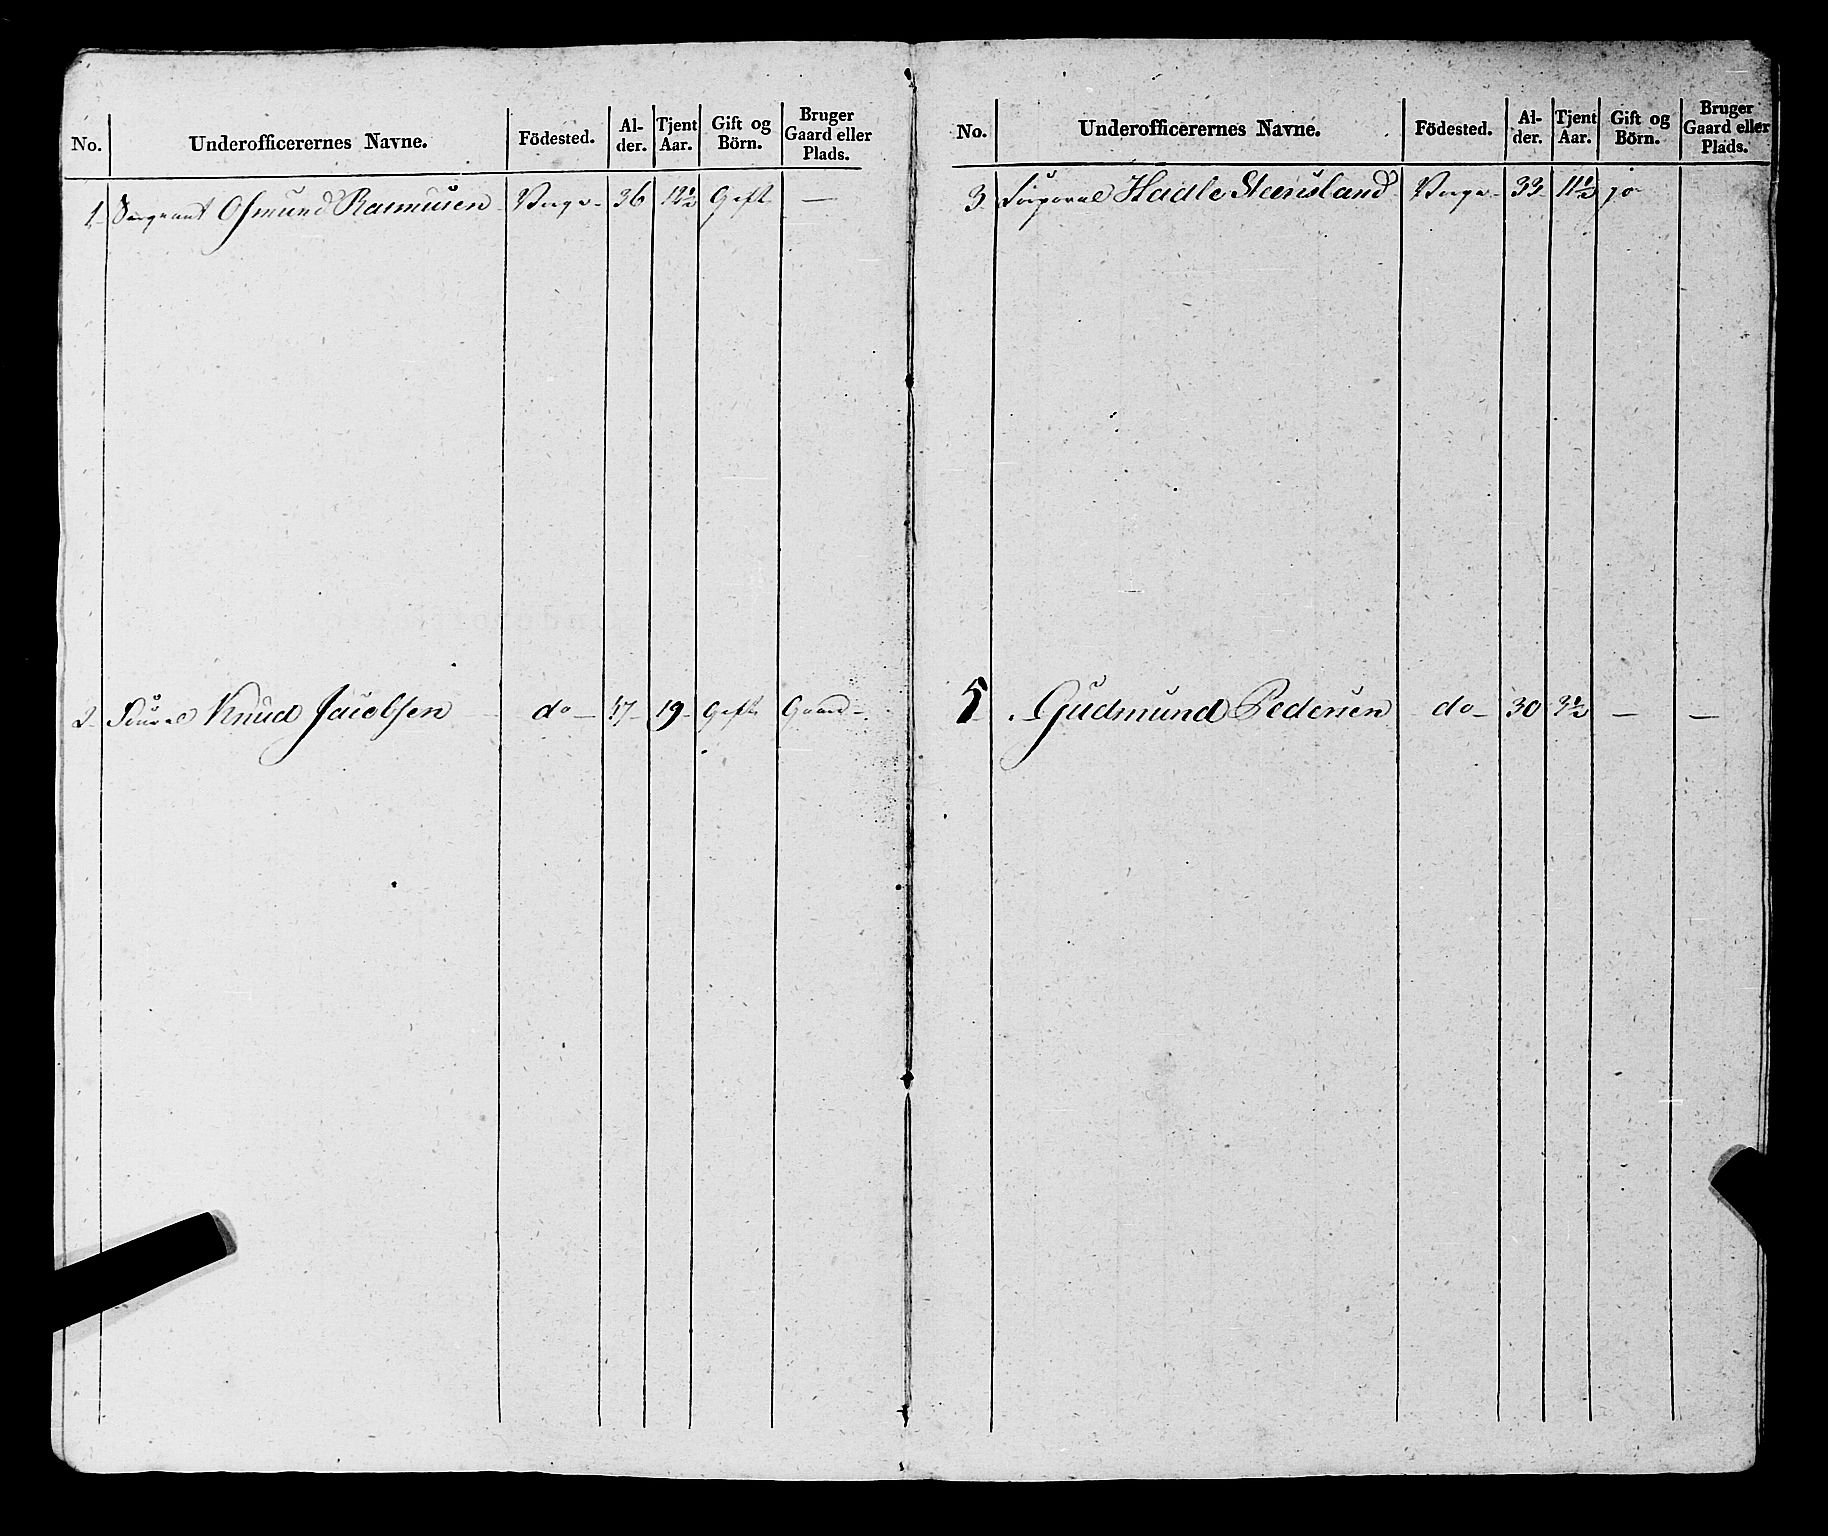 No. Underofficerernes Navne. Födested. Al-der. Tjent Aar. Gift og Börn. Bruger Gaard eller Plads.
1 Sergeant Osmund Rasmusen Norge 36 12½ Gift —
2 Knud Jacobsen do 19 Gift Gaard
No. Underofficerernes Navne. Födested. Al-der. Tjent Aar. Gift og Börn. Bruger Gaard eller Plads.
3 Corporal Hadle Steensland Norge 33 11½ ja
5 Gudmund Pedersen do 30 3½ — —